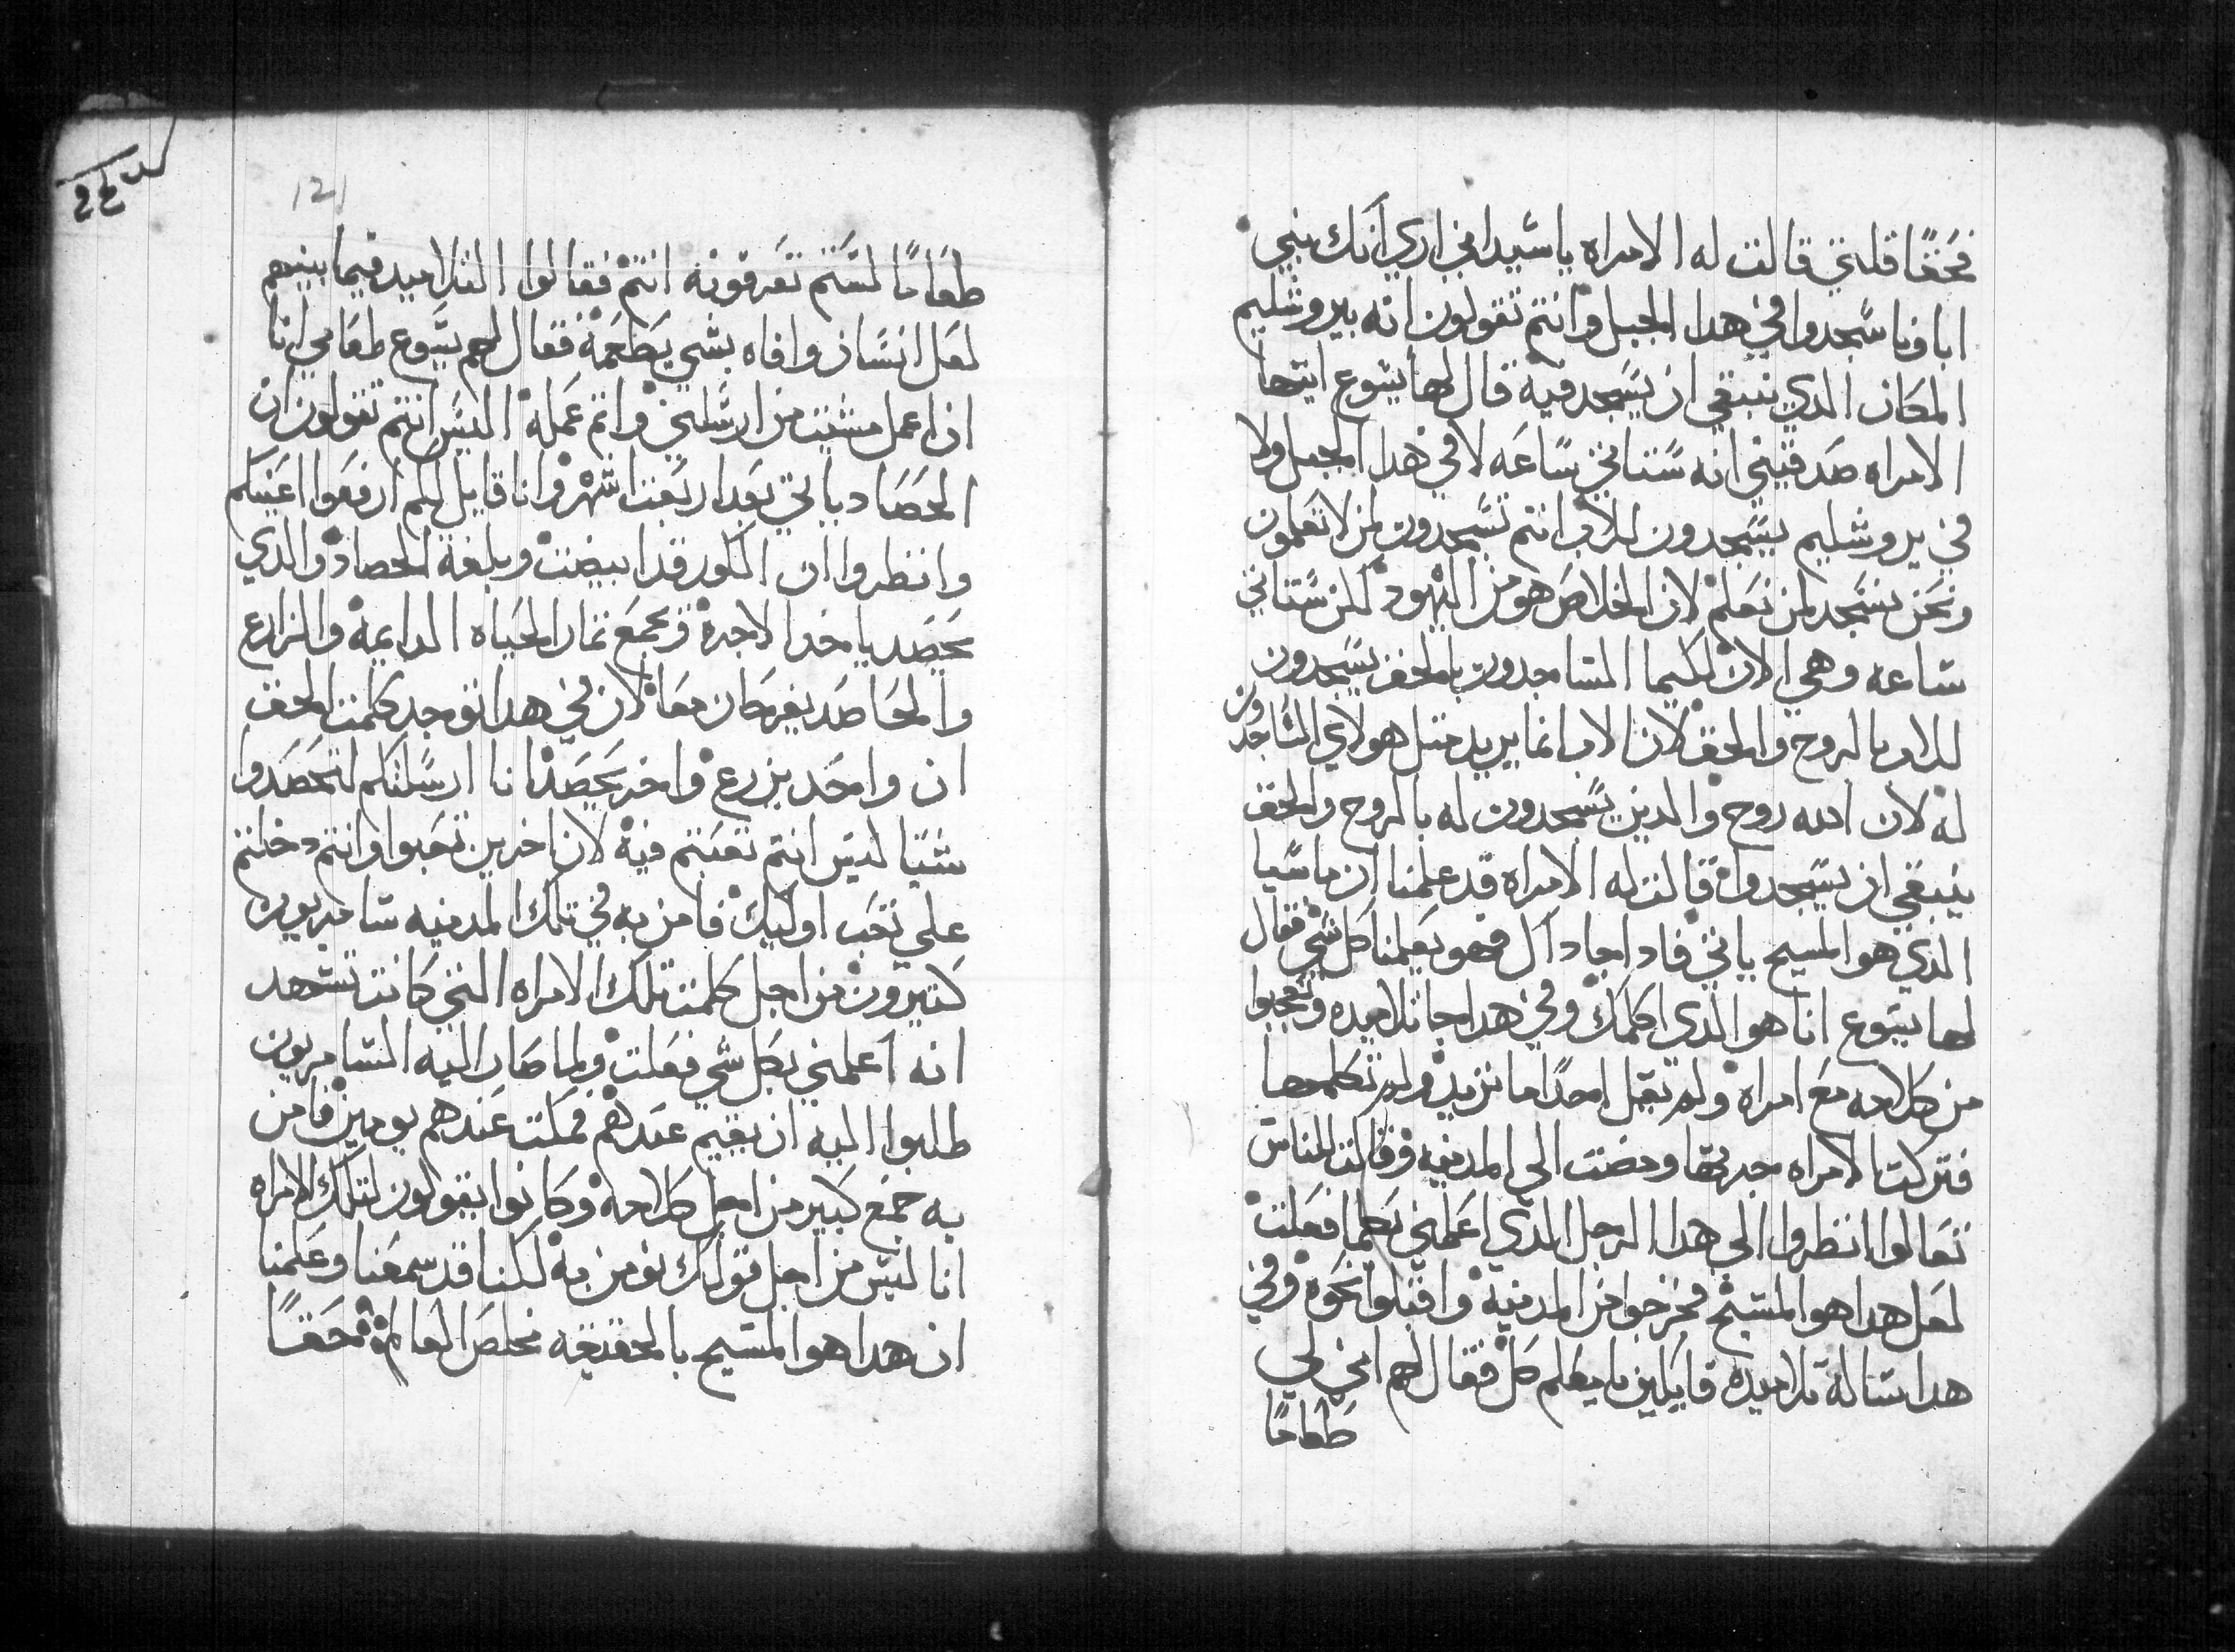 فحقًا قلتي قالت له الامراه ياسيد اني اري انك نبي
اباونا سجدوا في هدا الجبل وانتم تقولون انه بيروشليم
المكان الدي ينبغي ان يسجد فيه قال لها يسوع ايتها
الامراه صدقيني انه ستاتي ساعه لا في هدا الجبل ولا
في يروشليم يسجدون للاب انتم تسجدون لمن لا تعلمون
ونحن نسجد لمن نعلم لان الخلاص هو من اليهود لكن ستاتي
ساعه وهي الان لكيما الساجدون بالحق يسجدون
للاب بالروح والحق لان الاب انما يريد متل هولاي الساجدون
له لان الله روح والدين يسجدون له بالروح والحق
ينبغي ان يسجدوا قالت له الامراه قد علمنا ان ماسيا
الدي هو المسيح ياتي فادا جا داك فهو يعلمنا كل شي فقال
لها يسوع انا هو الدي اكلمك وفي هدا جا تلاميده وتعجبوا
من كلامه مع امراه ولم يقل احدًا ما تريد ولم تكلمها
فتركت الامراه جرتها ومضت الي المدينه وقالت للناس
تعالوا انظروا الي هدا الرجل الدي اعلمني بكلما فعلت
لعل هدا هو المسيح فخرجوا من المدينة واقبلوا نحوه وفي
هدا ساله تلاميده قايلين يا معلم كل فقال لهم اني لي
طعامًا
121
طعامًا لستم تعرفونه انتم فقالوا التلاميد فيما بينهم
لعل انسان وافاه بشي يطعمه فقال لهم يسوع طعامي انا
ان اعمل مشيت من ارسلني واتم عمله اليس انتم تقولون ان
الحصاد ياتي بعد اربعت اشهر وانا قايل لكم ارفعوا اعينكم
وانظروا ان الكور قد ابيضت وبلغة الحصاد والدي
يحصد ياخد الاجرة ويجمع تمار الحياه الدايمة والزارع
والحاصد يفرحان معا لان في هدا توجد كلمت الحق
ان واحد يزرع واخر يحصد انا ارسلتكم لتحصدوا
شيًا ليس انتم تعبتم فيه لان اخرين تعبوا وانتم دخلتم
علي تعب اوليك فامن به في تلك المدينه سامريون
كتيرون من اجل كلمت تلك الامراه التي كانت تشهد
انه اعلمني بكل شي فعلت ولما صار اليه السامريون
طلبوا اليه ان يقيم عندهم فمكت عندهم يومين فامن
به جمع كبير من اجل كلامه وكانوا يقولون لتلك الامراه
انا ليس من اجل قولك نومن به لكنا قد سمعنا وعلمنا
ان هدا هو المسيح بالحقيقه مخلص العالم فحقًا